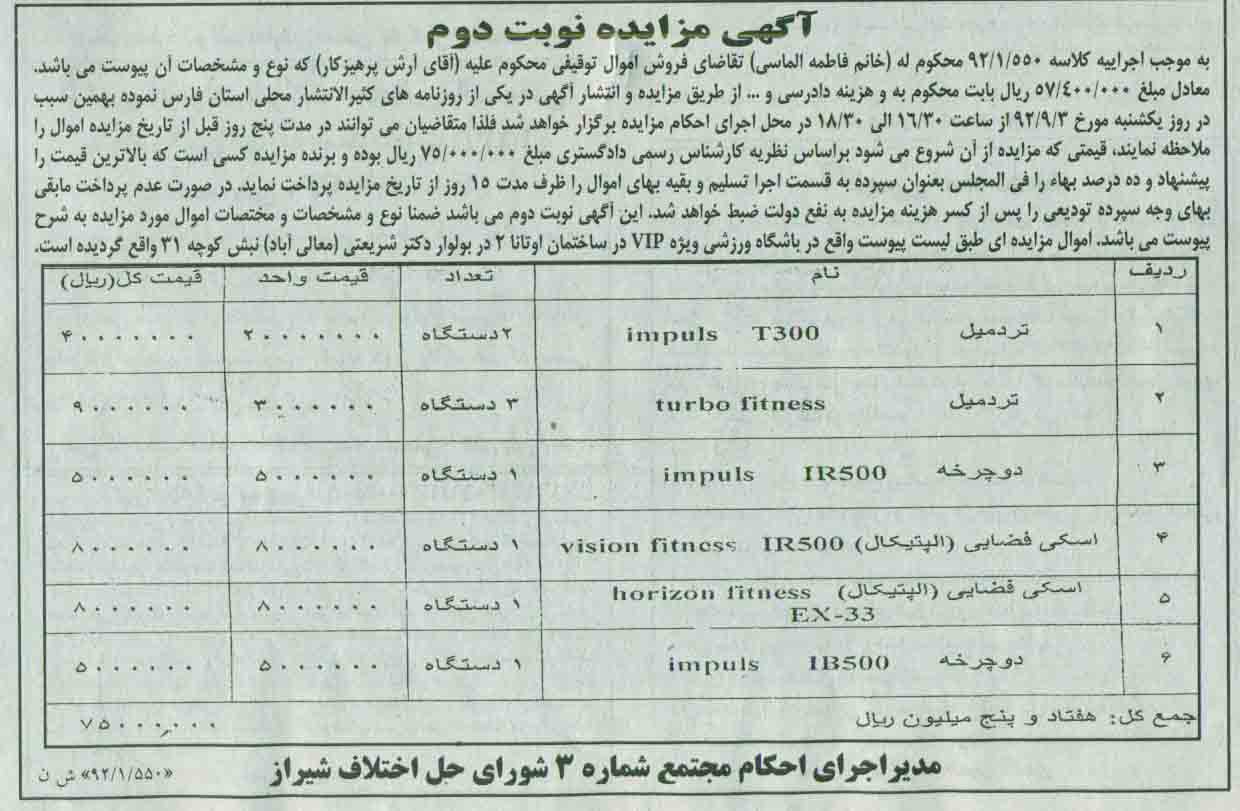 آگهی مزایده نوبت دوم
به موجب اجراییه کلاسه ۹۲/۱/۵۵۰ محکوم له (خانم فاطمه الماسی) تقاضای فروش اموال توقیفی محکوم علیه (آقای آرش پرهیزکار) که نوع و مشخصات آن پیوست می باشد.
معادل مبلغ ۵۷/۴۰۰/۰۰۰ ریال بابت محکوم به و هزینه دادرسی و ... از طریق مزایده و انتشار آگهی در یکی از روزنامه های کثیرالانتشار محلی استان فارس نموده بهمین سبب
در روز یکشنبه مورخ ۹۲/۹/۳ از ساعت ۱۶/۳۰ الی ۱۸/۳۰ در محل اجرای احکام مزایده برگزار خواهد شد فلذا متقاضیان می توانند در مدت پنج روز قبل از تاریخ مزایده اموال را
ملاحظه نمایند، قیمتی که مزایده از آن شروع می شود براساس نظریه کارشناس رسمی دادگستری مبلغ ۷۵/۰۰۰/۰۰۰ ریال بوده و برنده مزایده کسی است که بالاترین قیمت را
پیشنهاد و ده درصد بهاء را فی المجلس بعنوان سپرده به قسمت اجرا تسلیم و بقیه بهای اموال را ظرف مدت ۱۵ روز از تاریخ مزایده پرداخت نماید. در صورت عدم پرداخت مابقی
بهای وجه سپرده تودیعی را پس از کسر هزینه مزایده به نفع دولت ضبط خواهد شد. این آگهی نوبت دوم می باشد ضمنا نوع و مشخصات و مختصات اموال مورد مزایده به شرح
پیوست می باشد. اموال مزایده ای طبق لیست پیوست واقع در باشگاه ورزشی ویژه VIP در ساختمان اوتانا ۲ در بولوار دکتر شریعتی (معالی آباد) نبش کوچه ۳۱ واقع گردیده است.
ردیف نام تعداد قیمت واحد قیمت کل(ریال)
۱ تردمیل impuls T300 ۲ دستگاه ۲۰۰۰۰۰۰۰ ۴۰۰۰۰۰۰۰
۲ تردمیل turbo fitness ۳ دستگاه ۳۰۰۰۰۰۰ ۹۰۰۰۰۰۰
۳ دوچرخه impuls IR500 ۱ دستگاه ۵۰۰۰۰۰۰ ۵۰۰۰۰۰۰
۴ اسکی فضایی (الپتیکال) vision fitness IR500 ۱ دستگاه ۸۰۰۰۰۰۰ ۸۰۰۰۰۰۰
۵ اسکی فضایی (الپتیکال) horizon fitness ۱ دستگاه ۸۰۰۰۰۰۰ ۸۰۰۰۰۰۰
EX-33
۶ دوچرخه impuls IB500 ۱ دستگاه ۵۰۰۰۰۰۰ ۵۰۰۰۰۰۰
جمع کل: هفتاد و پنج میلیون ریال ۷۵۰۰۰,۰۰۰
مدیر اجرای احکام مجتمع شماره ۳ شورای حل اختلاف شیراز
«۹۲/۱/۵۵۰» ش ن